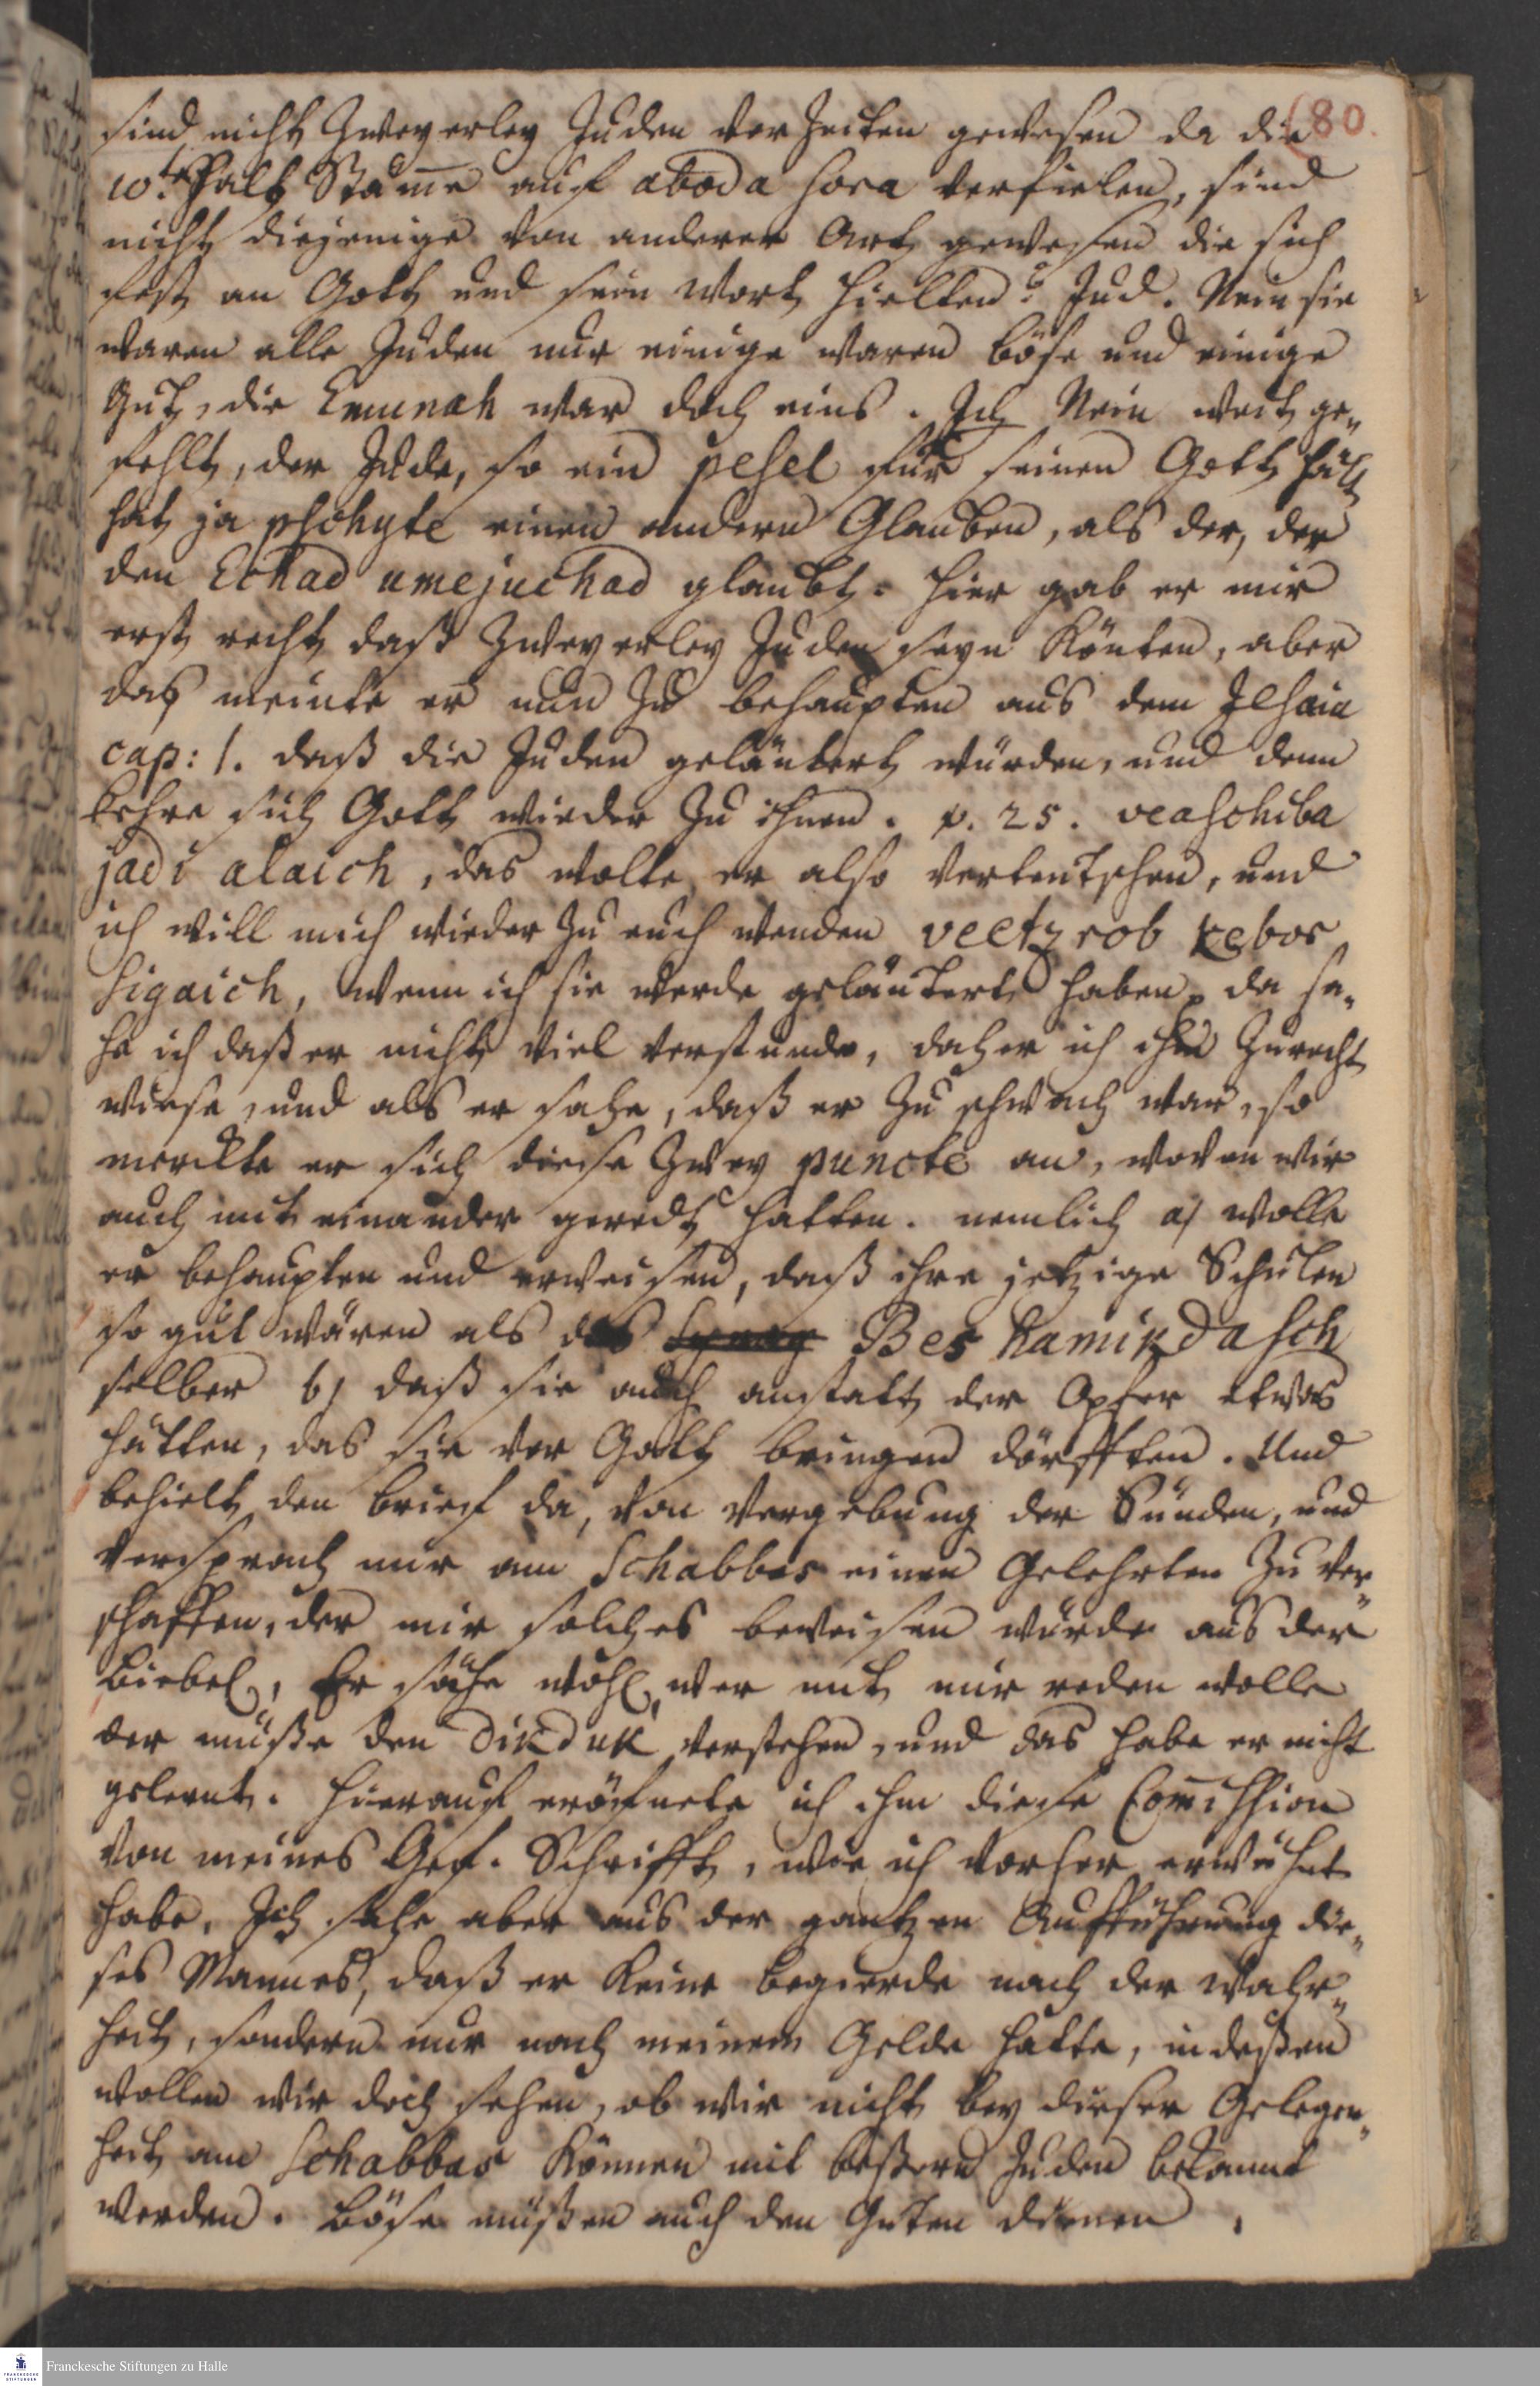 (80.
sind nicht Zweyerley Juden vor Zeiten gewesen da die
10te halb Stäm̄e auf aboda sora verfielen, sind
nicht diejenige von anderer Art gewesen die sich
fest an Gott und sein Wort hielten? Jud. Nein sie
waren alle Juden nur einige waren böse und einige
Gut, die Emunah war doch eins. Ich Nein weit ge„
fehlt, der Jude, so ein pesel für seinen Gott hält
hat ja pschyte einen andern Glauben, als der, der
den Echad umejuchad glaubt. hier gab er mir
erst recht daß Zweyerley Juden seyn Könten, aber
das meinte er nun Zu behaupten aus dem Jesaia
cap: 1. daß die Juden geläutert würden, und denn
kehre sich Gott wieder Zu ihnen. v. 25. veaschiba
jadi alaich, das wolte er also verteutschen, und
ich will mich wieder Zu euch wenden veetzrob kebor
sigaich, wenn ich sie werde geläutert haben. da sa„
he ich daß er nicht viel verstunde, daher ich ihn Zurecht
wiese, und als er sahe, daß er Zu schwach war, so
merckte er sich diese Zwey puncte an, wovon wir
auch mit einander geredt hatten. nemlich a) wolle
er behaupten und erweisen, daß ihre jetzige Schulen
so gut wären als das Bes hamikdasch
selber b) daß sie auch anstatt der Opfer etwas
hätten, das sie vor Gott bringen dörfften. Und
behielt den brief da, von Vergebung der Sünden, und
versprach mir am Schabbes einen Gelehrten Zu ver„
schaffen, der mir solches beweisen würde aus der
Biebel, Er sähe wohl, wer mit mir reden wolle
der müße den Dikduk verstehen, und das habe er nicht
gelernt. hierauf eröfnete ich ihm diese Com̄ission
von meines Gef. Schrifft, wie ich vorher erwähnt
habe, Ich sahe aber aus der gantzen Aufführung die„
ses Mannes, daß er Keine begierde nach der Wahr„
heit, sondern nur nach meinem Gelde hatte, indeßen
wollen wir doch sehen, ob wir nicht bey dieser Gelegen„
heit am Schabbas Können mit beßern Juden bekannt
werden. Böse müßen auch den Guten dienen.
Franckesche Stiftungen zu Halle